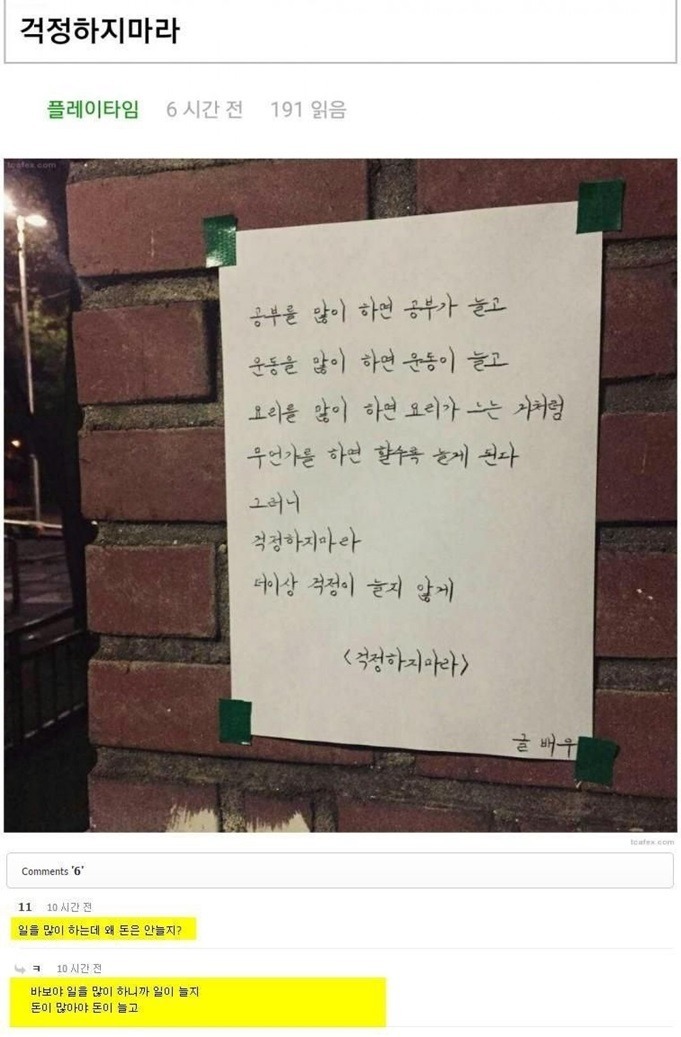 걱정하지마라
플레이타임 6 시간 전 191 읽음
tcafex.com
공부를 많이 하면 공부가 늘고
운동을 많이 하면 운동이 늘고
요리를 많이 하면 요리가 느는 거처럼
무언가를 하면 할수록 늘게 된다
그러니
걱정하지마라
더이상 걱정이 늘지 않게
<걱정하지마라>
글 배우
tcafex.com
Comments '6'
11 10 시간 전
일을 많이 하는데 왜 돈은 안늘지?
ㅋ 10 시간 전
바보야 일을 많이 하니까 일이 늘지
돈이 많아야 돈이 늘고